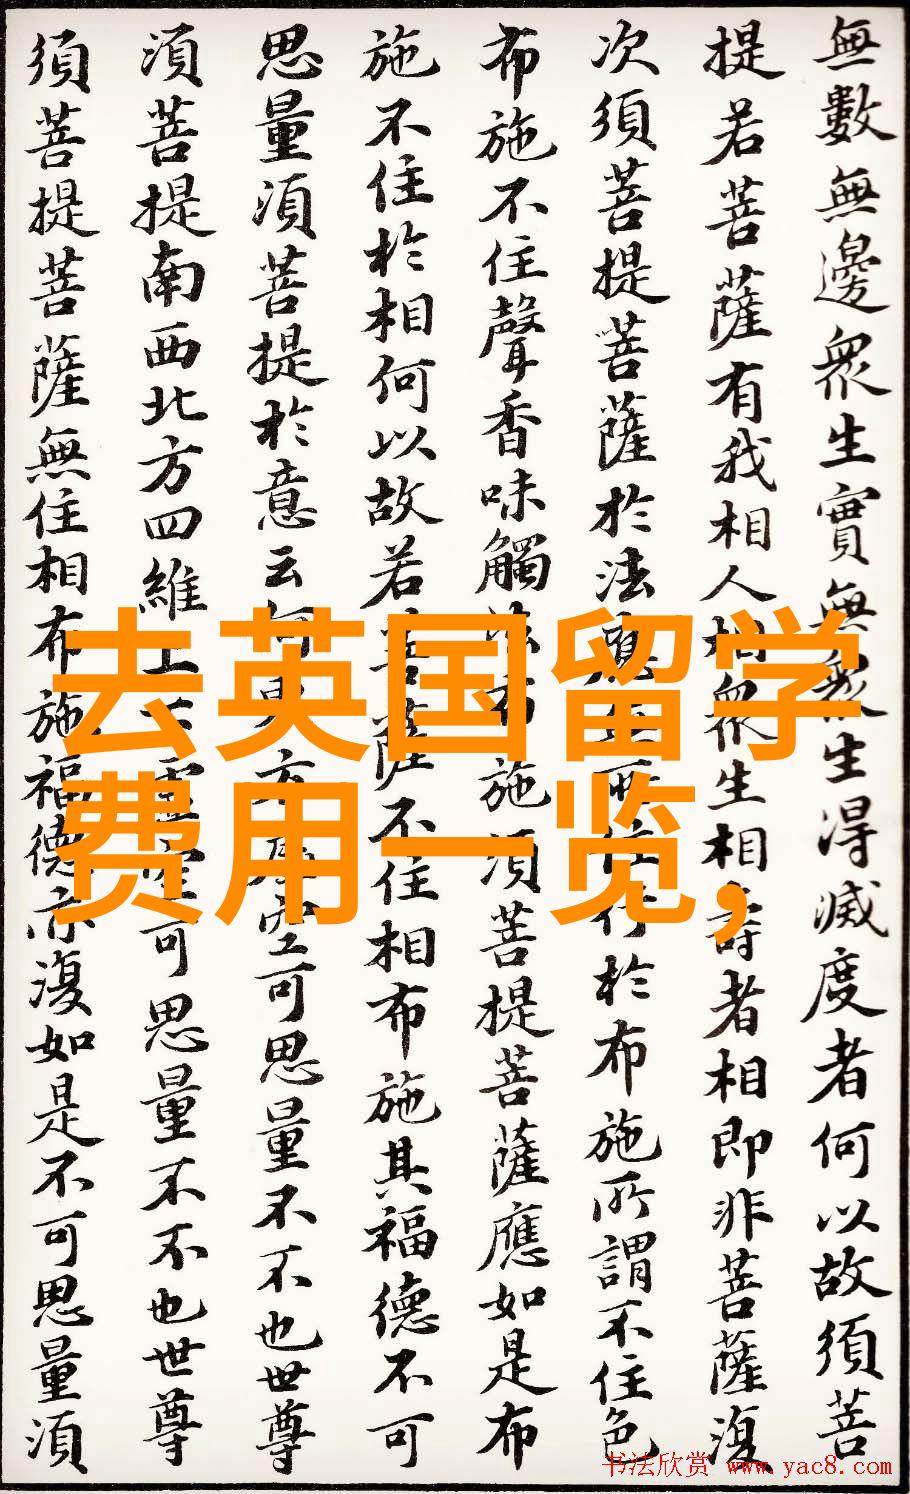 無數無邊衆生實無衆生得滅度者何以故須菩
提若菩薩有我相人相衆生相壽者相即非菩薩復
次須菩提菩薩於法應無所住行於布施所謂不住色
布施不住聲香味觸法布施須菩提菩薩應如是布
施不住於相何以故若菩薩不住相布施其福德不可
思量須菩提於意云何東方虛空可思量不不也世尊
須菩提南西北方四維上下虛空可思量不不也世尊
須菩提菩薩無住相布施福德亦復如是不可思量須
去英国留学
费用一览,
书法欣赏 www.yac8.com